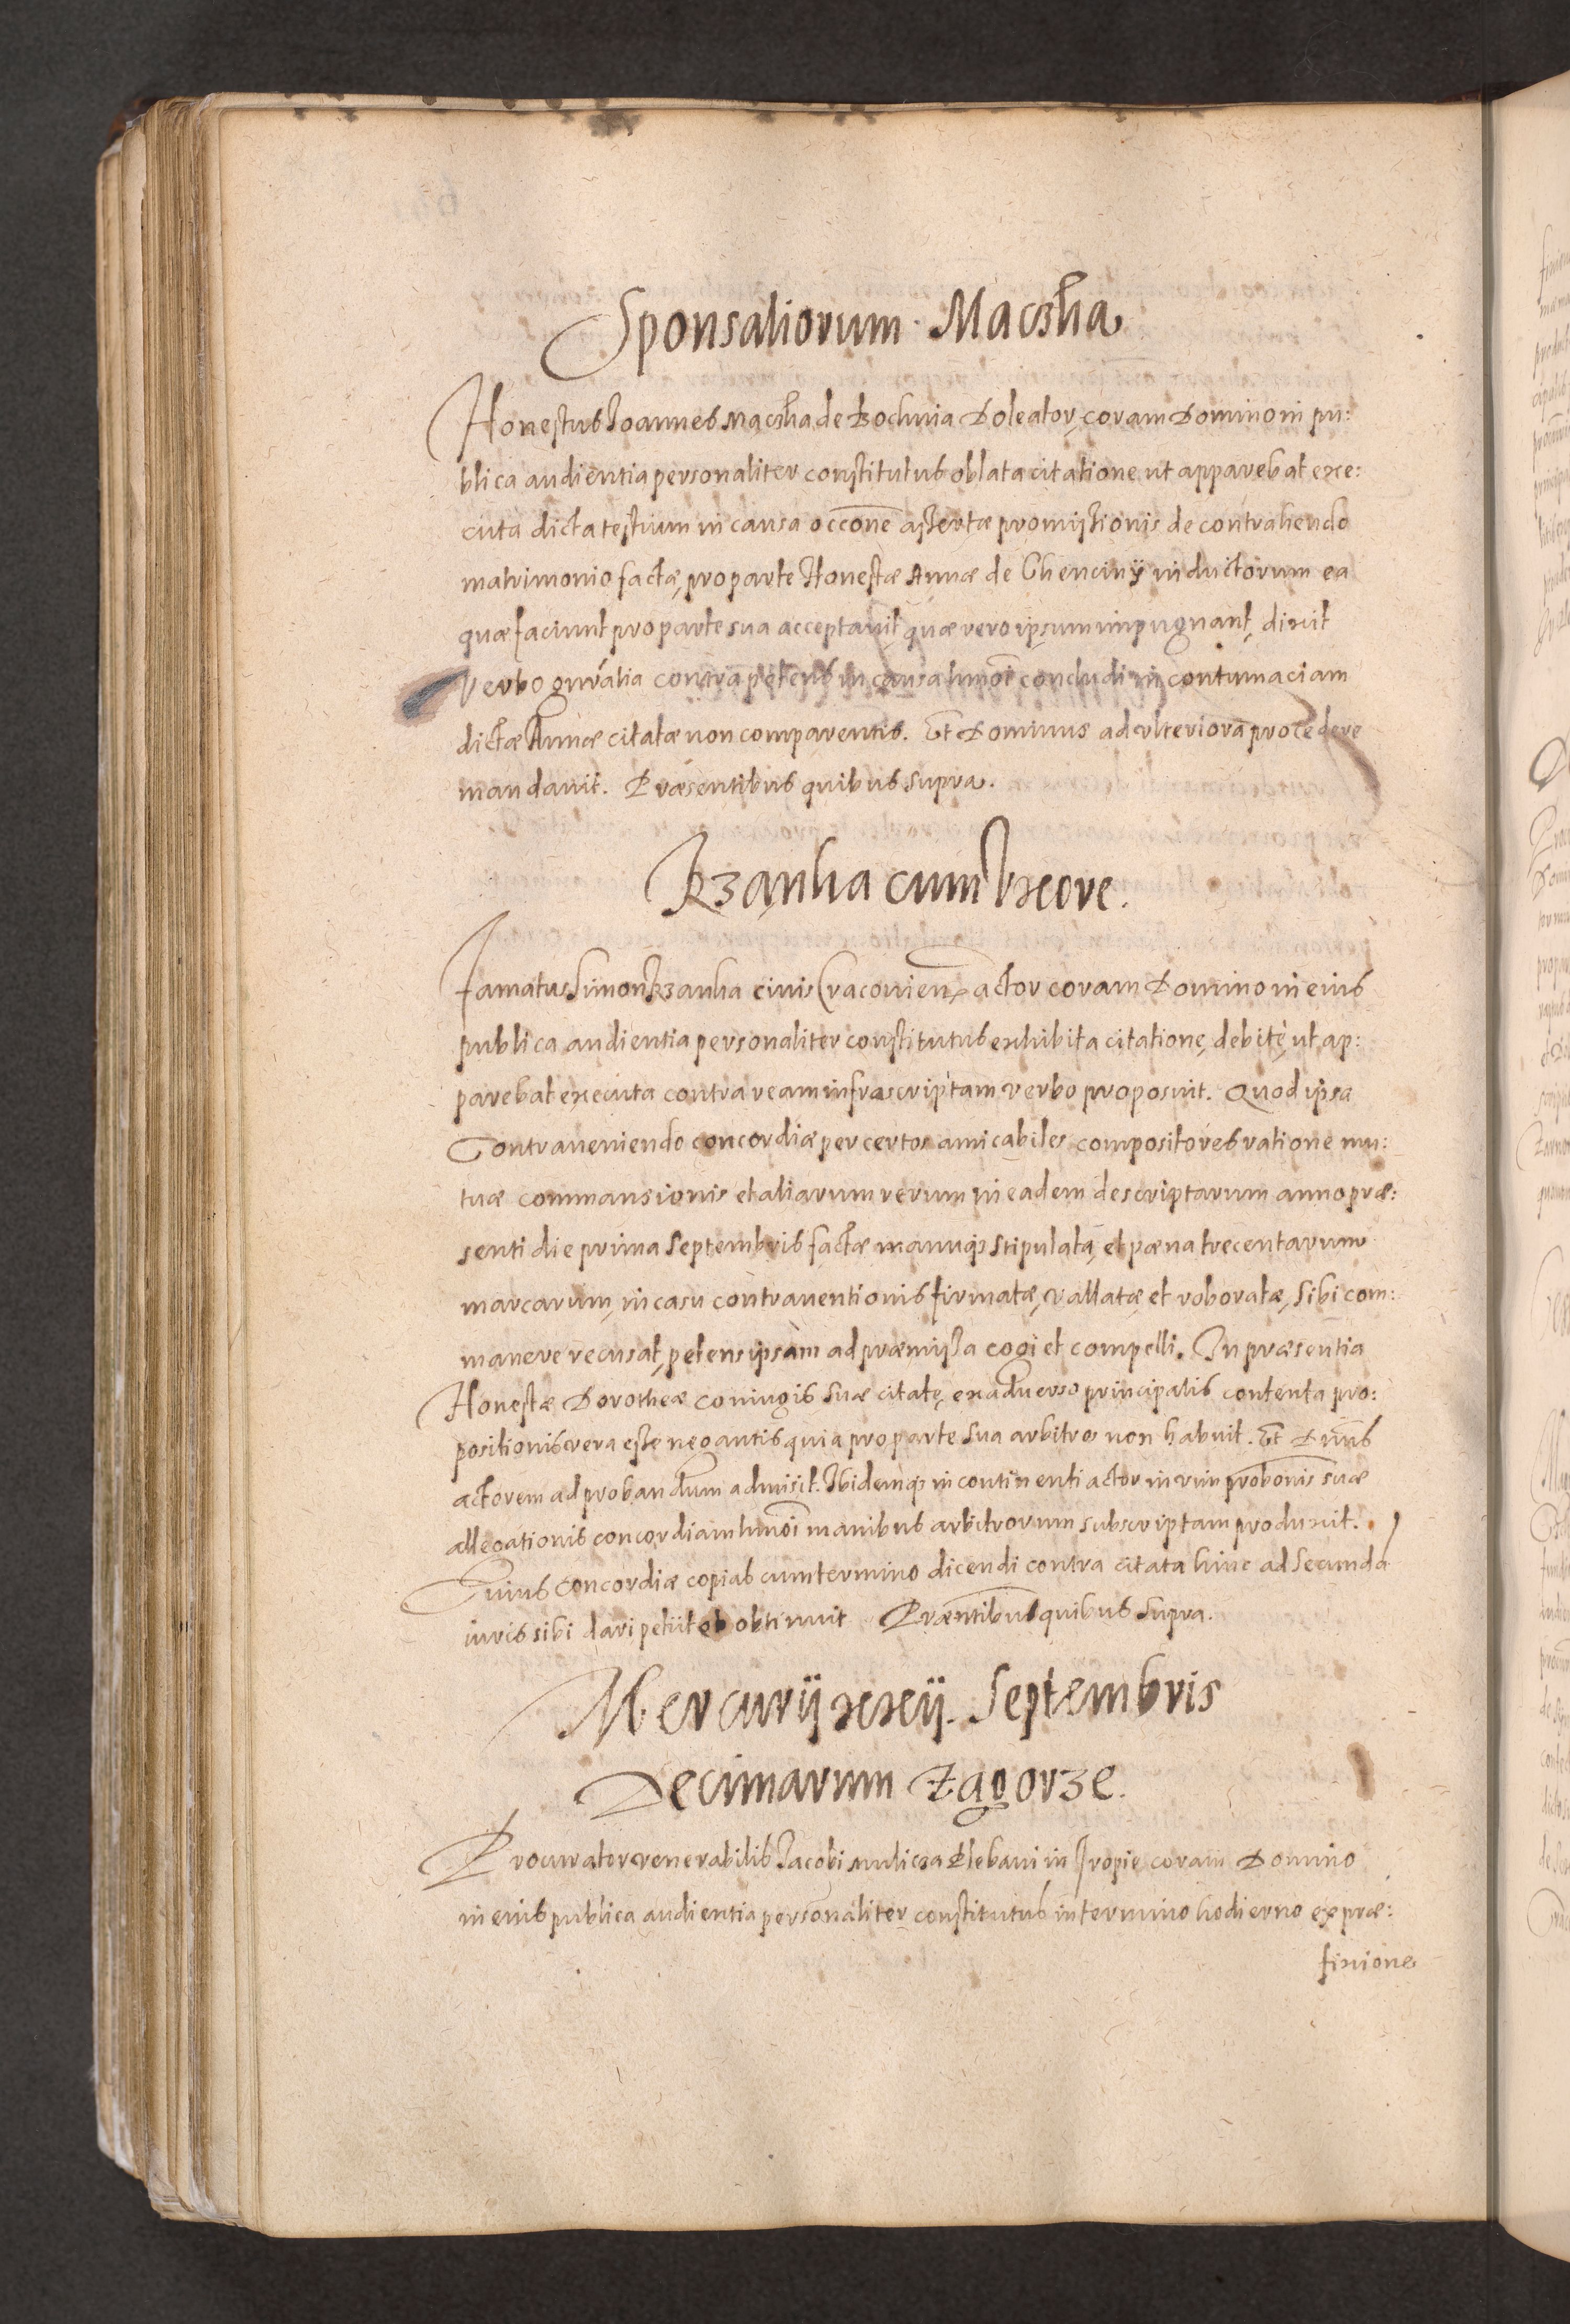 Sponsaliorum Maczka
Honestus Joannes Maczka de Bochnia Doleator, coram Domino in pu:
blica audientia personaliter constitutus oblata citatione ut apparebat exe:
cuta dicta testium in causa occōne assertæ promissionis de contrahendo
matrimonio factæ, pro parte Honestæ Annæ de Chencinÿ inductorum ea
quæ faciunt pro parte sua acceptavit quæ vero ipsum impugnant, dixit
Verbo gnrália contra petens in causa hmōi concludi in contumaciam
dictæ Annæ citatæ non comparentis. Et Dominus ad ulteriora procedere
mandavit. Præsentibus quibus supra.
Rzańka cum Uxore.
Famatus Simon Rzanka civis Cracovien actor coram Domino in eius
publica audientia personaliter constitutus exhibita citatione, debitè ut ap:
parebat executa contra ream infrascriptam verbo proposuit. Quod ipsa
Contraveniendo concordiæ per certos amicabiles compositores ratione mu:
tuæ commansionis et aliarum rerum in eadem descriptarum anno præ:
senti die prima Septembris factæ manuq; stipulatæ et pæna trecentarum
marcarum, in casu contraventionis firmatæ, vallatæ et roboratæ, sibi com:
manere recusat, petens ipsam ad præmissa cogi et compelli. In præsentia
Honestæ Dorotheæ coniugis suæ citatę, ex adverso principalis contenta pro:
positionis vera esse negantis quia pro parte sua arbitros non habuit. Et Dnūs
actorem ad probandum admisit. Ibidemq; in continenti actor in vim probōnis suæ
allegationis concordiam hmōi manibus arbitrorum subscriptam produxit.
Cuius Concordiæ copias cum termino dicendi contra citata hinc ad secunda
iuris sibi dari petiit et obtinuit Præntibus quibus supra.
Mercurÿ xxiÿ. Septembris
Decimarum Zagorze.
Procurator venerabilis Jacobi Mulicza Plebani in Iropie coram Domino
in eius publica audientia personaliter constitutus in termino hodierno ex præ:
fixione